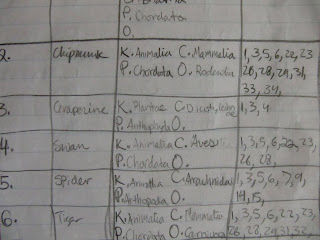 P. Chordata
O.
2. Chipmunk K. Animalia C. Mammalia 1,3,5,6,22,23
P. Chordata O. Rodentia 26,28,29,31,
33,34,
3. K. Plantae 1,3,4
P. Anthophyta O.
4. Swan K. Animalia C. Aves 1,3,5,6,22,23,
P. Chordata O. 26,28,
5. Spider K. Animalia C. Arachnida 1,3,5,6,7,9,
P. Arthopoda O. 14,15,
6. Tiger K. Animalia C. Mammalia 1,3,5,6,22,23,
P. Chordata O. Carnivora 26,28,29,31,32,